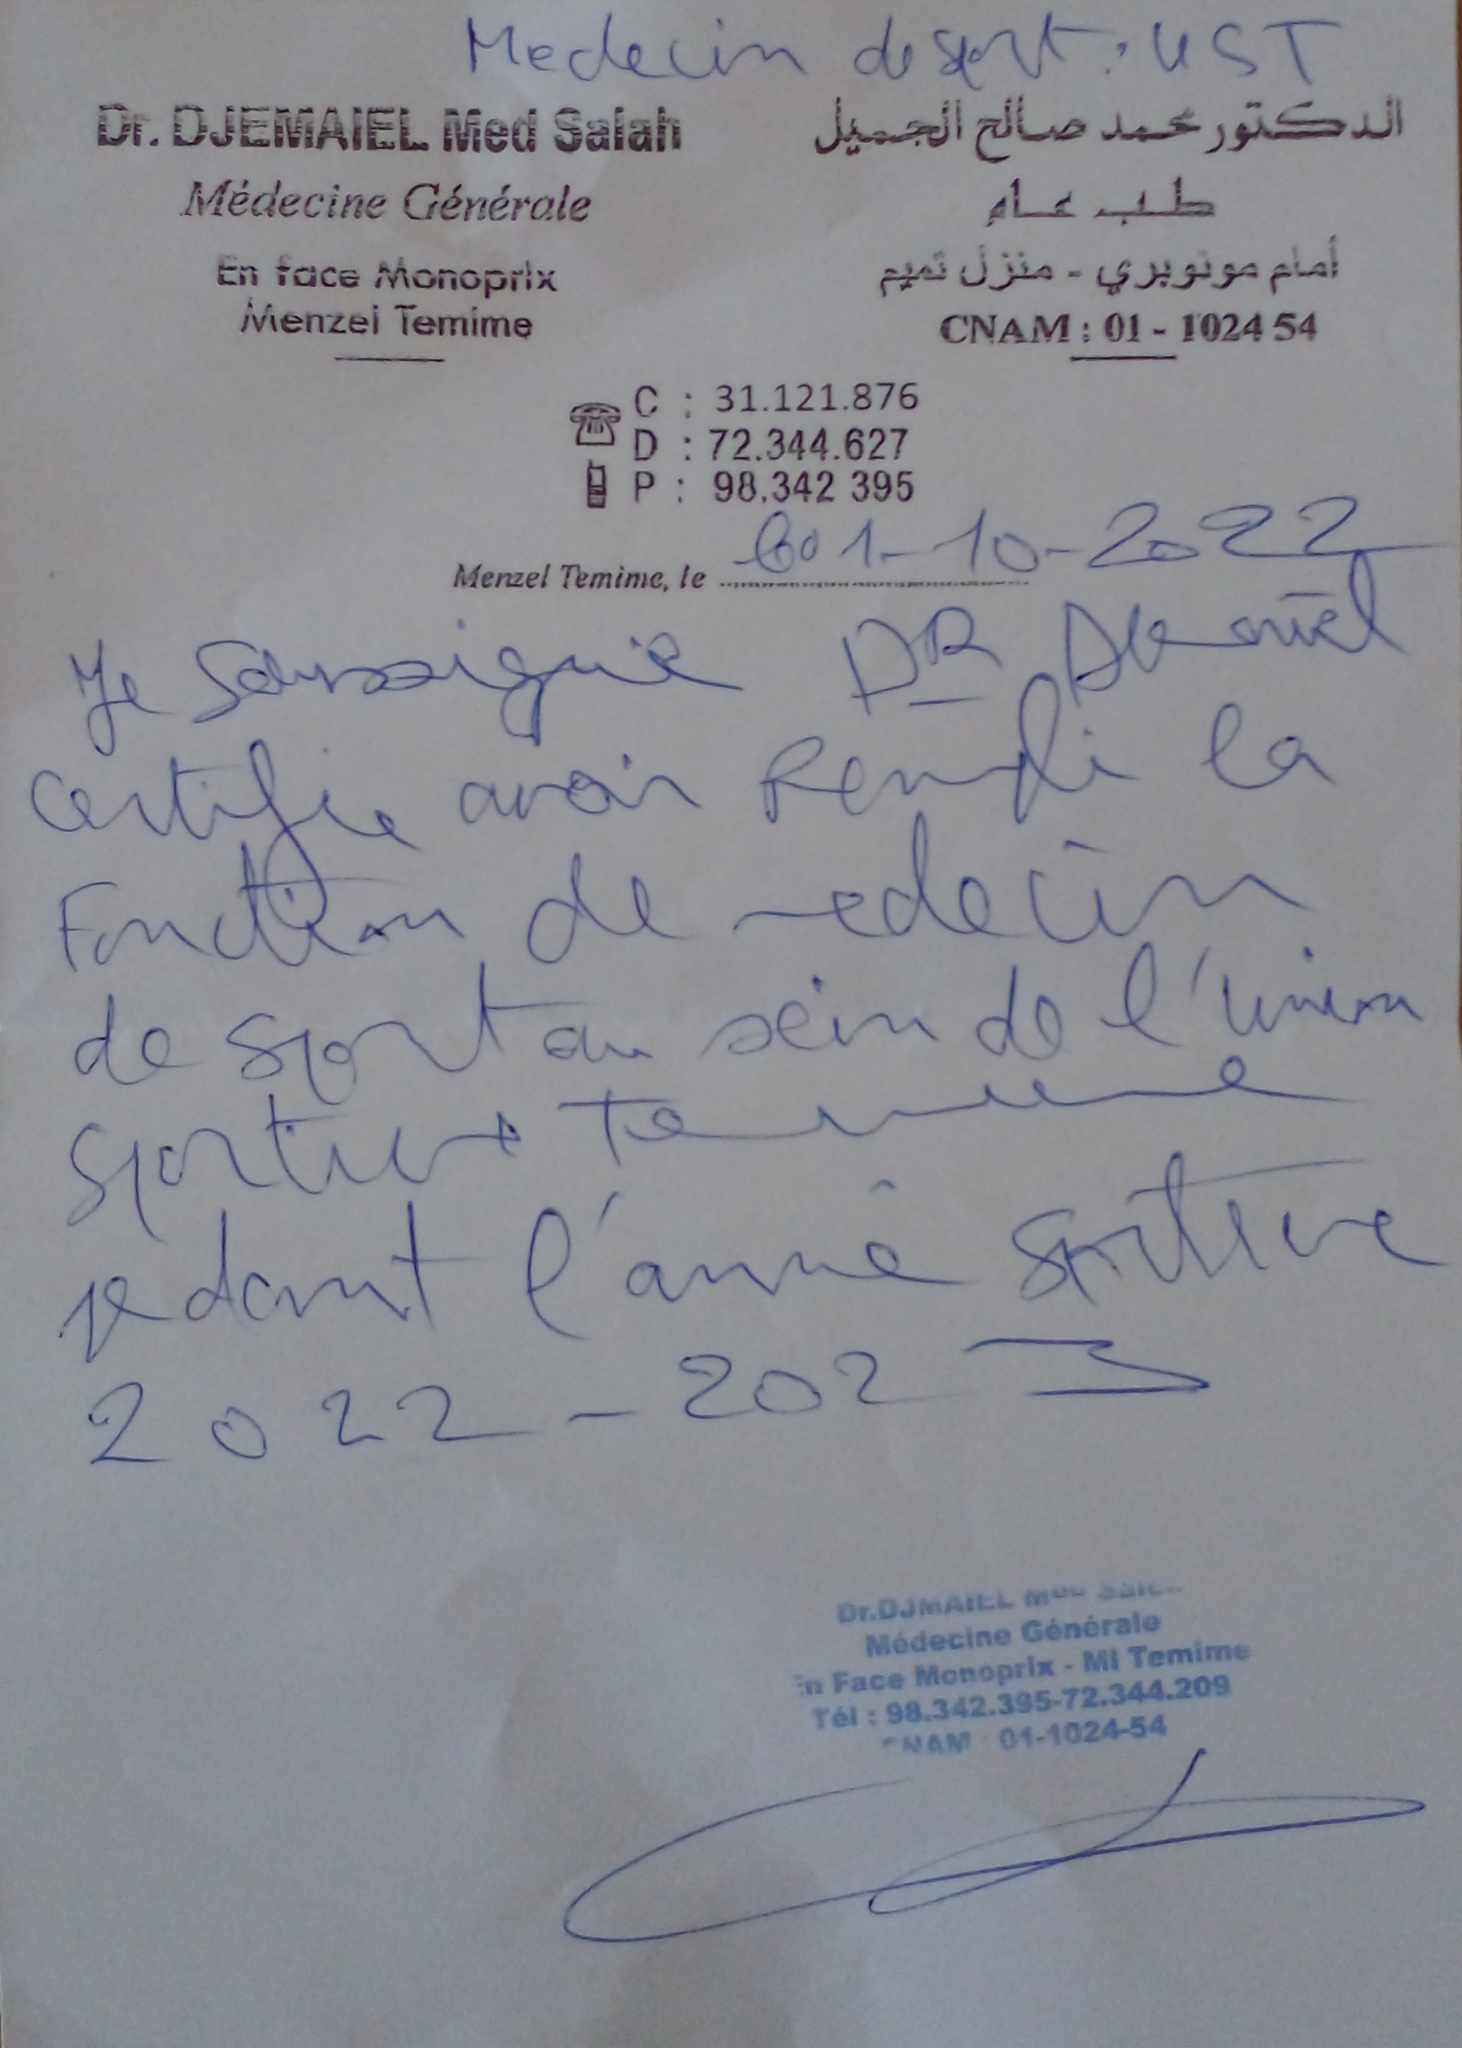 Medecin de sport : UST
Dr. DJEMAIEL Med Salah
الدكتور محمد صالح الجميل
Médecine Générale
طب عام
En face Monoprix
أمام مونوبري - منزل تميم
Menzel Temime
CNAM : 01 - 1024 54
C : 31.121.876
D : 72.344.627
P : 98.342 395
Menzel Temime, le 01-10-2022
Je soussigné DR
certifie avoir rempli la
Fonction de medecin
de sport au sein de l'union
sportive temime
pedant l'année sportive
2022-2023
Dr.DJMAIEL Med Salah
Médecine Générale
En Face Monoprix - Ml Temime
Tél : 98.342.395-72.344.209
CNAM : 01-1024-54